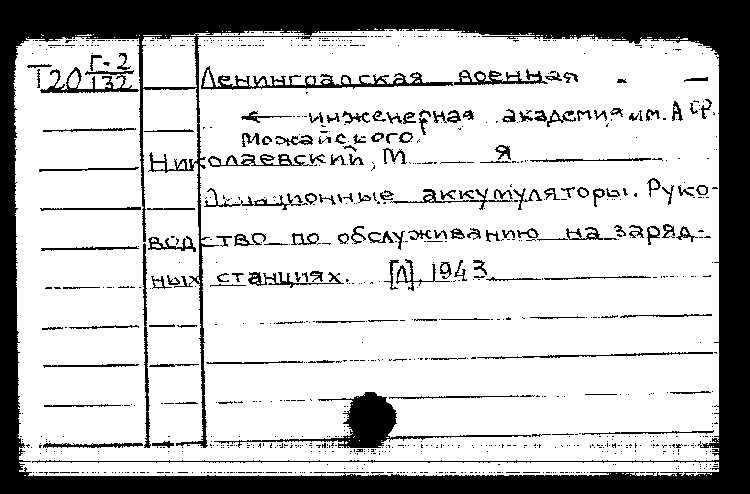 Т20 Г-2/132 Ленинградская военная -
← инженерная академия им. А.Ф.
Можайского.
Николаевский, М Я
Авиационные аккумуляторы. Руко-
водство по обслуживанию на заряд-
ных станциях. [Л], 1943.